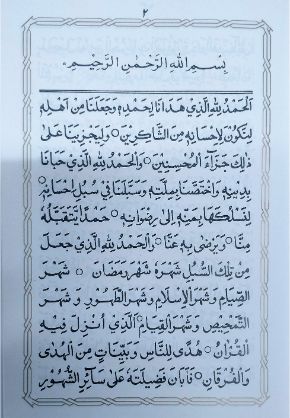 ٢
بِسْمِ اللهِ الرَّحْمٰنِ الرَّحِيْمِ
اَلْحَمْدُ لِلّٰهِ الَّذِيْ هَدَانَا لِحَمْدِهٖ وَجَعَلَنَا مِنْ اَهْلِهٖ
لِنَكُوْنَ لِاِحْسَانِهٖ مِنَ الشَّاكِرِيْنَ ○ وَلِيَجْزِيَنَا عَلٰى
ذٰلِكَ جَزَآءَ الْمُحْسِنِيْنَ ○ وَالْحَمْدُ لِلّٰهِ الَّذِيْ حَبَانَا
بِدِيْنِهٖ وَاخْتَصَّنَا بِمِلَّتِهٖ وَسَبَّلَنَا فِيْ سُبُلِ اِحْسَانِهٖ
لِنَسْلُكَهَا بِمَنِّهٖ اِلٰى رِضْوَانِهٖ ○ حَمْدًا يَتَقَبَّلُهٗ
مِنَّا ○ وَيَرْضٰى بِهٖ عَنَّا ○ وَالْحَمْدُ لِلّٰهِ الَّذِيْ جَعَلَ
مِنْ تِلْكَ السُّبُلِ شَهْرَهٗ شَهْرَ رَمَضَانَ ○ شَهْرَ
الصِّيَامِ وَشَهْرَ الْاِسْلَامِ وَشَهْرَ الطَّهُوْرِ وَ شَهْرَ
التَّمْحِيْصِ وَشَهْرَ الْقِيَامِ ○ الَّذِيْ اُنْزِلَ فِيْهِ
الْقُرْاٰنُ ○ هُدًى لِلنَّاسِ وَبَيِّنَاتٍ مِنَ الْهُدٰى
وَالْفُرْقَانِ ○ فَاَبَانَ فَضِيْلَتَهٗ عَلٰى سَآئِرِ الشُّهُوْرِ